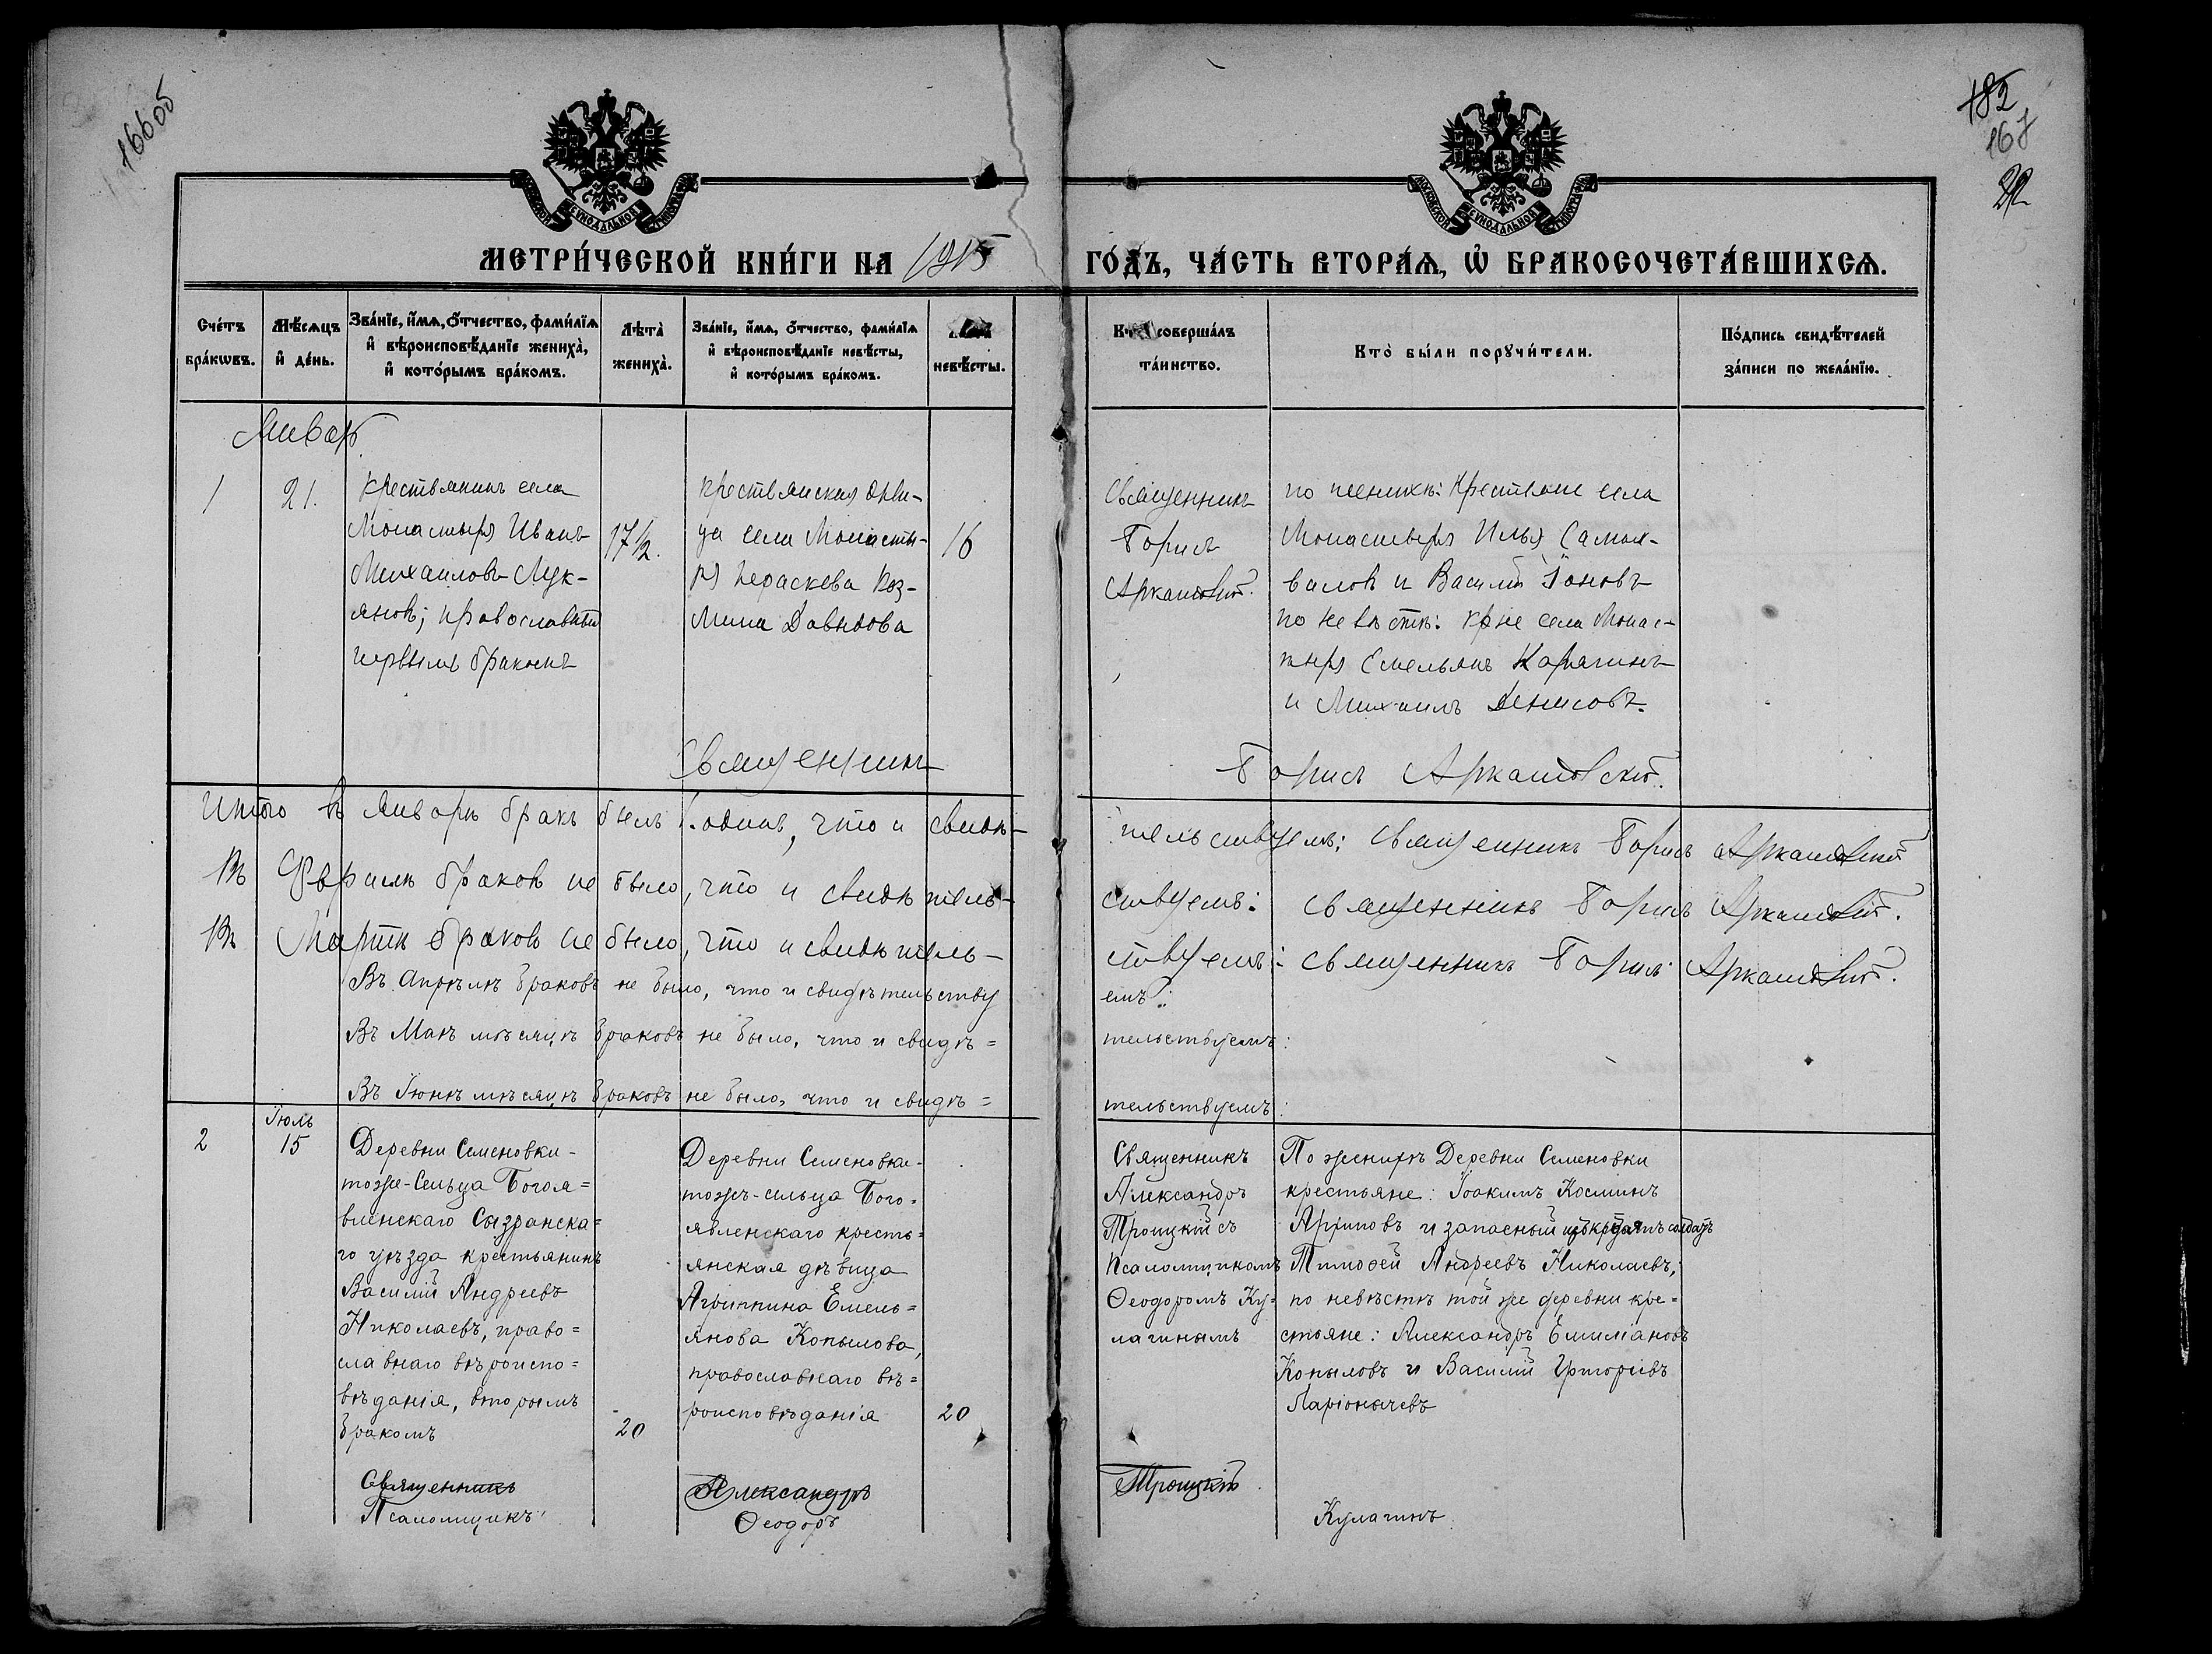 16605
182
167
МОСКОВСКОЙ СѴНОДАЛЬНОЙ ТИПОГРАФІИ
МОСКОВСКОЙ СѴНОДАЛЬНОЙ ТИПОГРАФІИ
МЕТРИ́ЧЕСКОЙ КНИ́ГИ НА 1915
ГО́ДЪ, ЧА́СТЬ ВТОРА́Ѧ, Ѡ҆ БРАКОСОЧЕТА́ВШИХСѦ.
Сче́тъ бра́кѡвъ.
Мѣ́сѧцъ и҆ де́нь.
Зва́нїе, и҆́мѧ, ѻ҆́тчество, фами́лїѧ
и҆ вѣроисповѣ́данїе жениха̀,
и҆ кото́рымъ бра́комъ.
Лѣ́та̀ жениха̀.
Зва́нїе, и҆́мѧ, ѻ҆́тчество, фами́лїѧ
и҆ вѣроисповѣ́данїе невѣ́сты,
и҆ кото́рымъ бра́комъ.
невѣ́сты.
Кто̀ соверша́лъ та́инство.
Кто̀ бы́ли порꙋчи́тели.
По́дпись свидѣ́телей
за́писи по жела́нїю.
Январь
1
21.
Крестьянинъ села
Монастыря Иванъ
Михаиловъ Лук-
яновъ; православный
первымъ бракомъ
17 1/2.
Крестьянская дѣви-
ца села Монасты-
ря Параскева Коз-
мина Давыдова
16
Священникъ
Борисъ
Аркатовскій.
по женихѣ: Крестьяне села
Монастыря Илья Самой-
валовъ и Василій Іоновъ
по невѣстѣ: кр-не села Монас-
тыря Емельянъ Карягинъ
и Михаилъ Денисовъ.
Священникъ Борисъ Аркатовскій.
Итого въ Январѣ бракъ былъ 1. одинъ, что и свидѣ-
тельствуемъ: Священникъ Борисъ Аркатовскій
Въ Февралѣ браковъ не было, что и свидѣтель-
ствуемъ: священникъ Борисъ Аркатовскій.
Въ Мартѣ браковъ не было, что и свидѣтель-
ствуемъ: священникъ Борисъ Аркатовскій.
Въ Апрѣлѣ браковъ не было, что и свидѣтельству
емъ:
Въ Маѣ мѣсяцѣ браковъ не было, что и свидѣ=
тельствуемъ:
Въ Іюнѣ мѣсяцѣ браковъ не было, что и свидѣ=
тельствуемъ:
2
Іюль
15
Деревни Семеновки-
тоже-Сельца Богоя=
вленскаго Сызранска=
го уѣзда крестьянинъ
Василій Андреевъ
Николаевъ, право=
славнаго вѣроиспо=
вѣданія, вторымъ
бракомъ
20
Деревни Семеновки-
тожъ-сельца Бого=
явленскаго кресть=
янская дѣвица
Агриппина Емель=
янова Копылова,
православнаго вѣ=
роисповѣданія
20
Священникъ
Александръ
Троицкій съ
Псаломщикомъ
Ѳеодоромъ Ку=
лагинымъ
По женихѣ Деревни Семеновки
крестьяне: Іоакимъ Косминъ
Архиповъ и запасный солдатъ
Тимоѳей Андреевъ Николаевъ;
по невѣстѣ той же деревни кре=
стьяне: Александръ Емиліановъ
Копыловъ и Василій Григорьевъ
Ларіонычевъ
Священникъ Александръ Троицкій
Псаломщикъ Ѳеодоръ Кулагинъ